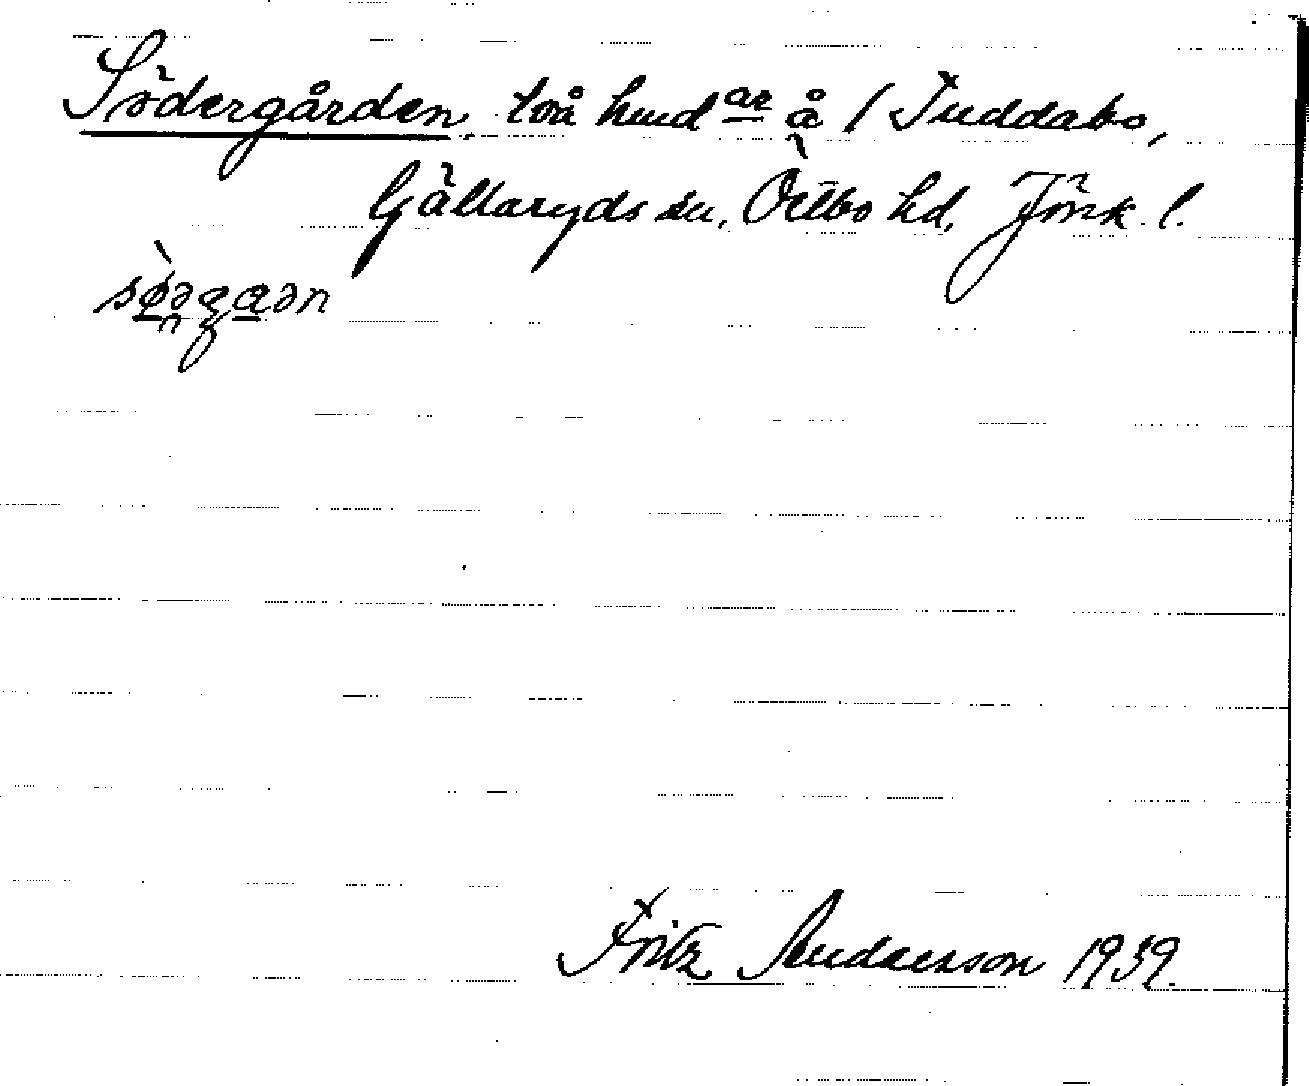 Södergården, två hemdar å 1 Tuddabo,
Gällaryds sn, Östbo hd, Jönk. l.
Fritz Andersson 1939.